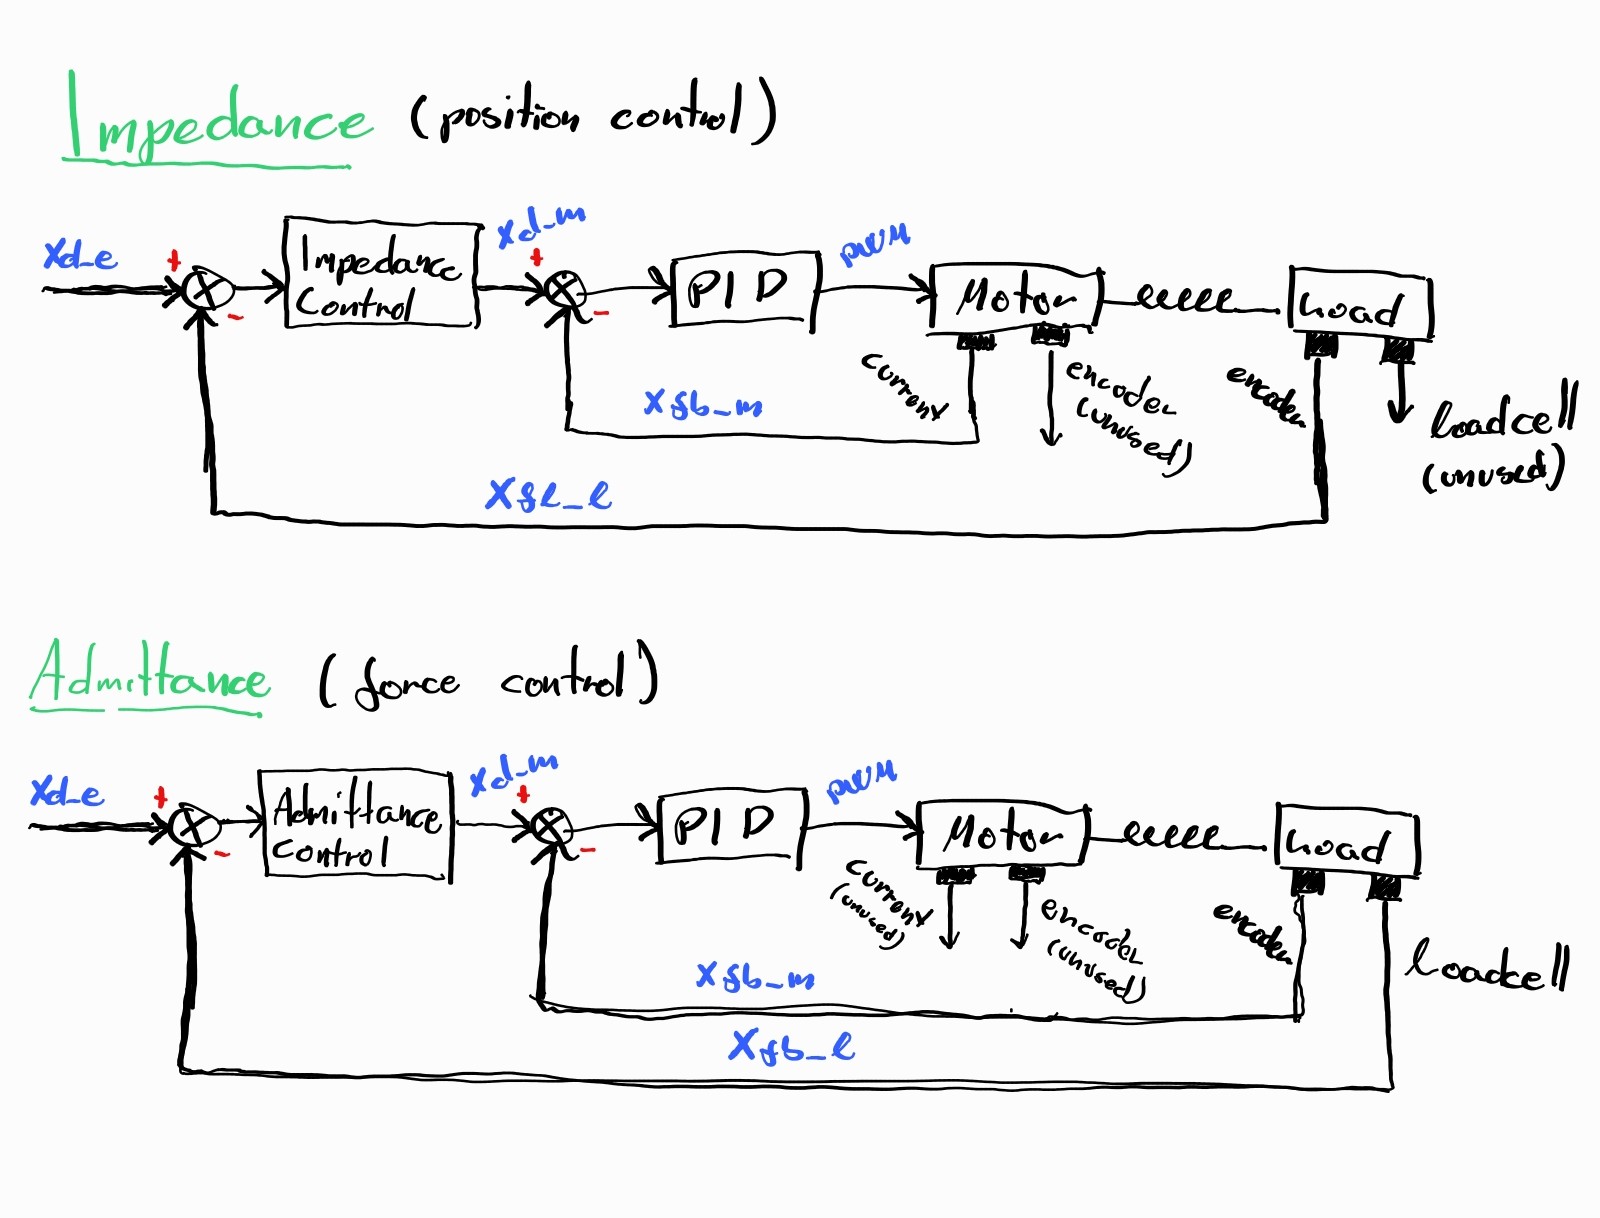 Impedance (position control)
Xd_e
+
-
Impedance
Control
Xd_m
+
-
PID
PWM
Motor
Load
current
encoder
(unused)
encoder
loadcell
(unused)
Xfb_m
Xfb_l
Admittance (force control)
Xd_e
+
-
Admittance
Control
Xd_m
+
-
PID
PWM
Motor
Load
current
(unused)
encoder
(unused)
encoder
loadcell
Xfb_m
Xfb_l